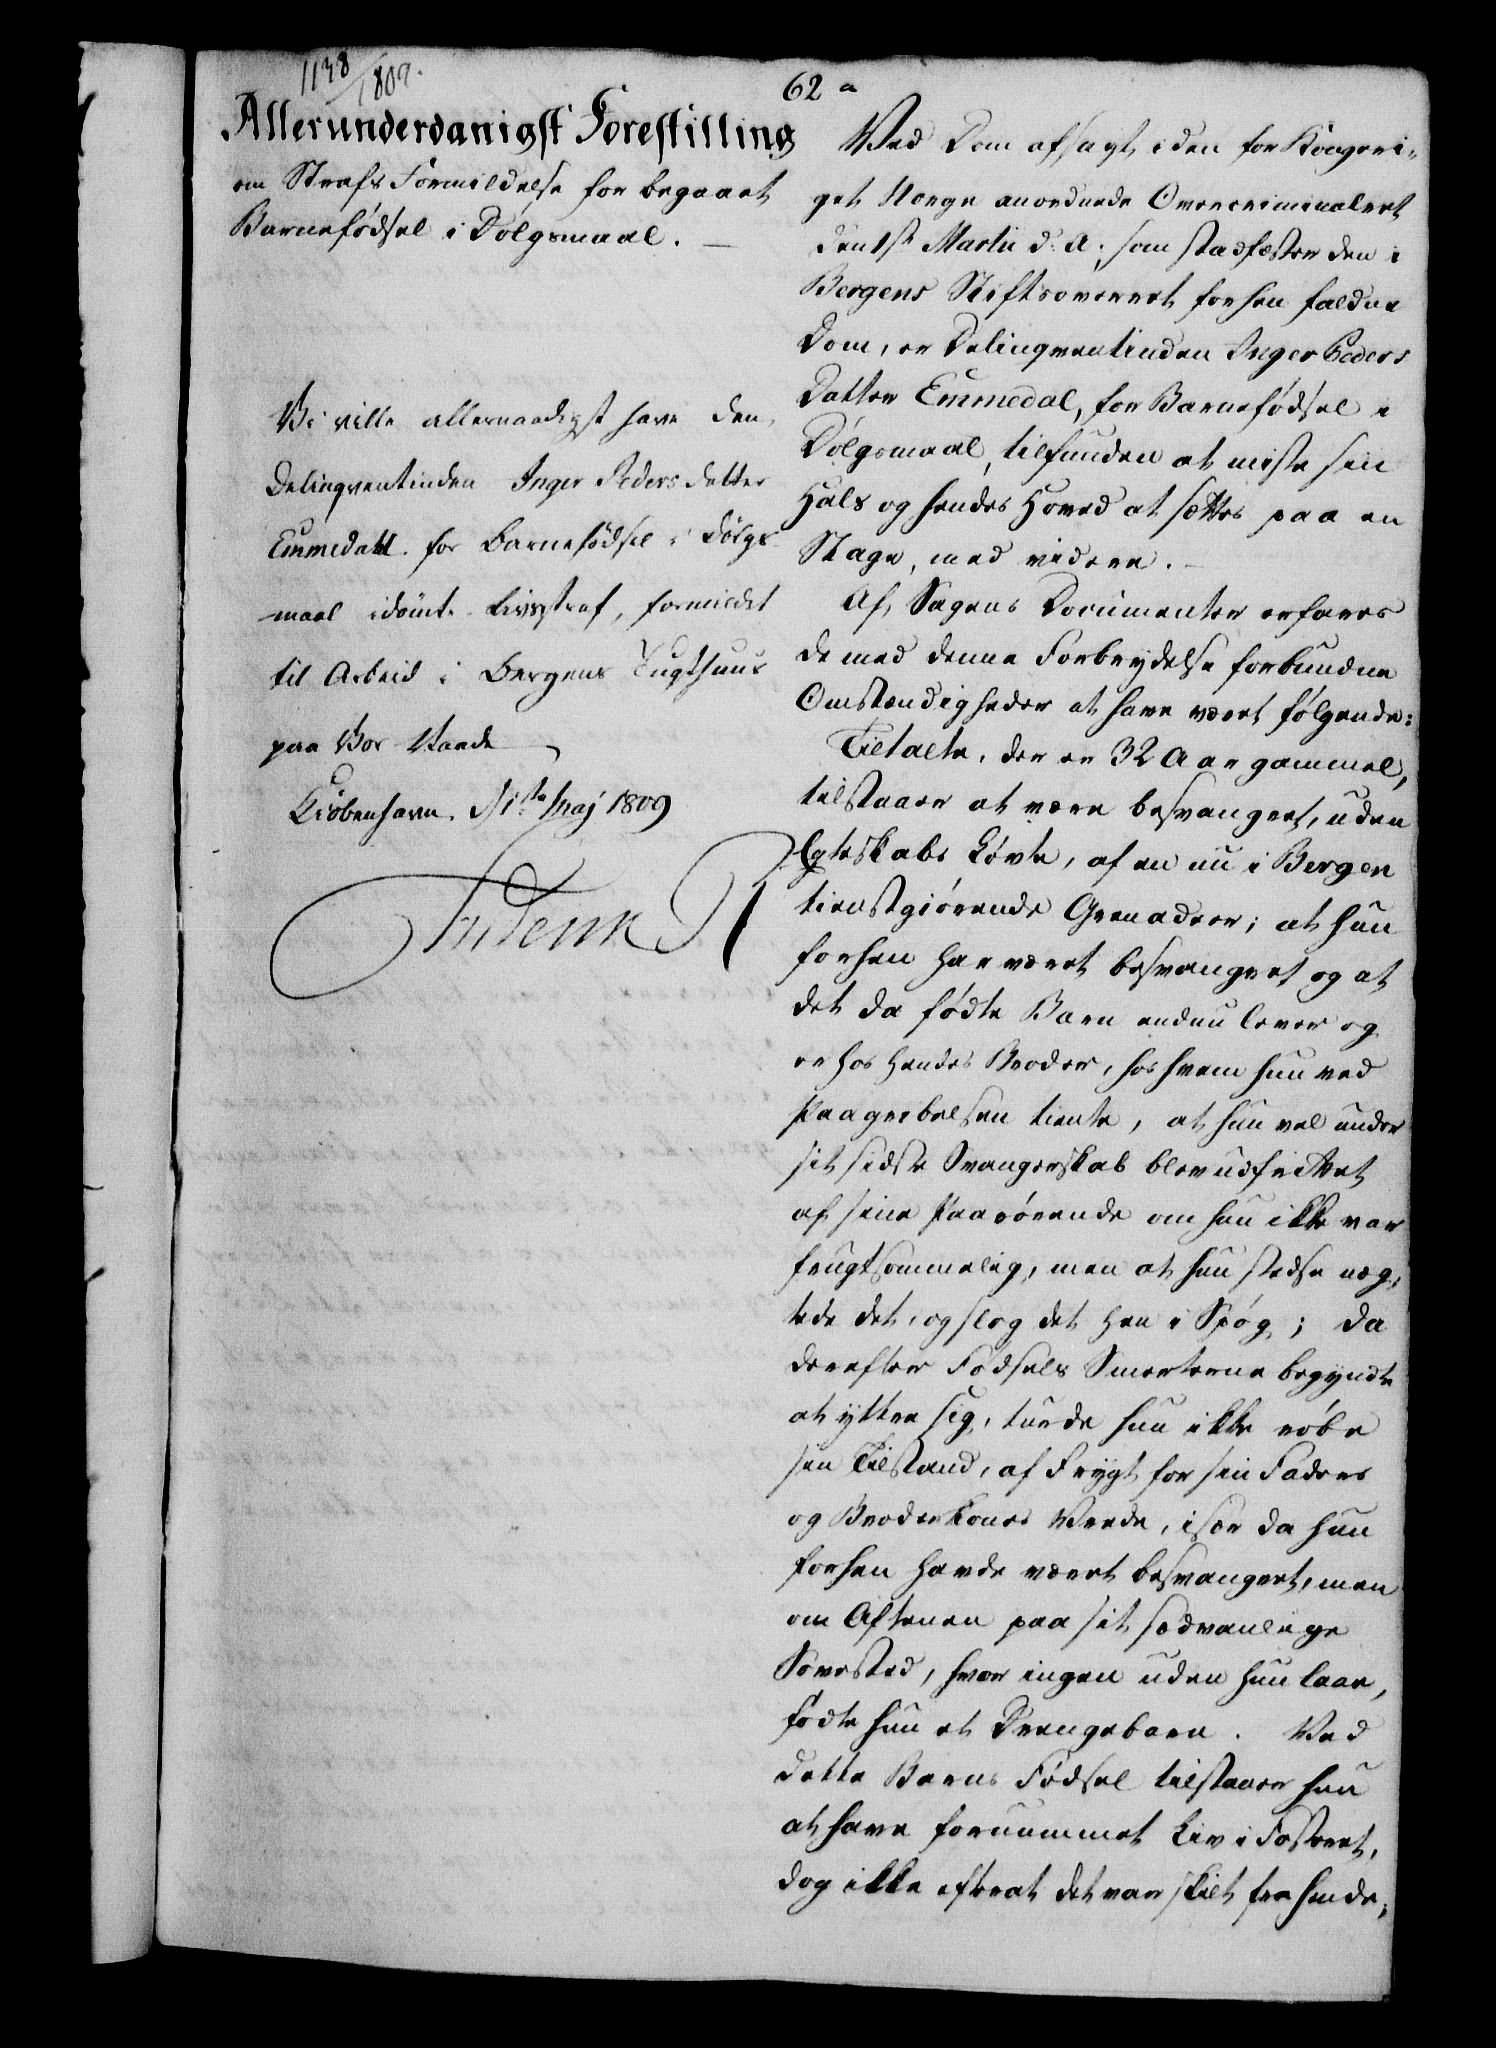 1138/1809.
62 a
Allerunderdanigst Forestilling
om Strafs Formildelse for begaaet
Barnefødsel i Dølgsmaal. —
Vi ville allernaadigst have den,
Delinqventinden Inger Peders datter
Emmedahl for Barnefødsel i Dølgs-
maal idømte Livsstraf, formildet
til Arbeid i Bergens Tugthuus
paa Vor Naade
Kiöbenhavn. d 1ste Maj 1809
Frideric R
Ved Dom afsagt i den for Kongeri-
get Norge anordnede Overcriminalret
den 1ste Martii d: A: som stadfæster den i
Bergens Stiftsoverret forhen faldne
Dom, er Delinqventinden Inger Peders
Datter Emmedal, for Barnefødsel i
Dølgsmaal, tilfunden at miste sin
Hals og hendes Hoved at sættes paa en
Stage, med videre. —
Af Sagens Documenter erfares
de med denne Forbrydelse forbundne
Omstændigheder at have været følgende:
Tiltalte, der er 32 Aar gammel,
tilstaaer at være besvangret, uden
Egteskabs Løvte, af en nu i Bergen
tienstgiørende Grenadeer; at hun
forhen har været besvangret og at
det da fødte Barn endnu lever og
er hos hendes Broder, hos hvem hun ved
Paagribelsen tiente, at hun vel under
sit sidste Svangerskab blev udfrittet
af sine Paarørende om hun ikke var
frugtsommelig, men at hun stedse næg-
tede det, og slog det hen i Spøg; da
derefter Fødsels Smerterne begyndte
at yttre sig, turde hun ikke røbe
sin Tilstand, af Frygt for sin Faders
og Broderkones Vrede, især da hun
forhen havde været besvangret, men
om Aftenen paa sit sædvanlige
Sovested, hvor ingen uden hun laae,
fødte hun et Drengebarn. Ved
dette Barns Fødsel tilstaaer hun
at have fornummet Liv i Fosteret,
dog ikke efterat det var skilt fra hende;